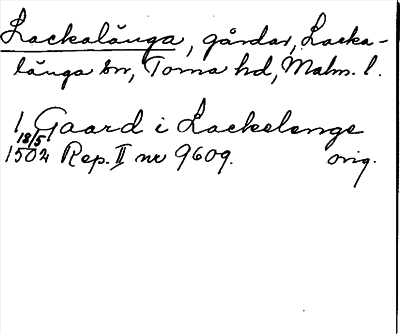 Lackalänga, gårdar, Lacka-
länga sn, Torna hd, Malm. l.
1 Gaard i Lackelenge
18/5
1504 Rep. II nr 9609. orig.